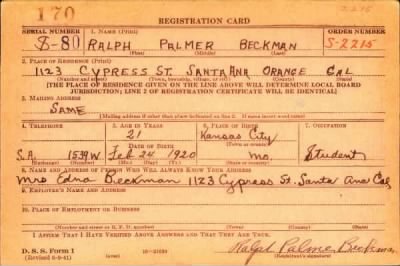 170
REGISTRATION CARD
SERIAL NUMBER 1. NAME (Print) ORDER NUMBER
S-80 RALPH PALMER BECKMAN S-2215
(First) (Middle) (Last)
2. PLACE OF RESIDENCE (Print)
1123 CYPRESS ST. SANTA ANA ORANGE CAL
(Number and street) (Town, township, village, or city) (County) (State)
[THE PLACE OF RESIDENCE GIVEN ON THE LINE ABOVE WILL DETERMINE LOCAL BOARD
JURISDICTION; LINE 2 OF REGISTRATION CERTIFICATE WILL BE IDENTICAL]
3. MAILING ADDRESS
SAME
[Mailing address if other than place indicated on line 2. If same insert word same]
4. TELEPHONE 5. AGE IN YEARS 6. PLACE OF BIRTH 7. OCCUPATION
21 Kansas City
DATE OF BIRTH (Town or county)
S.A. 1539W Feb 24 1920 Mo. Student
(Exchange) (Number) (Mo.) (Day) (Yr.) (State or country)
8. NAME AND ADDRESS OF PERSON WHO WILL ALWAYS KNOW YOUR ADDRESS
Mrs Edna Beckman 1123 Cypress St. Santa Ana Cal
9. EMPLOYER'S NAME AND ADDRESS
10. PLACE OF EMPLOYMENT OR BUSINESS
(Number and street or R. F. D. number) (Town) (County) (State)
I AFFIRM THAT I HAVE VERIFIED ABOVE ANSWERS AND THAT THEY ARE TRUE.
D. S. S. Form 1 Ralph Palmer Beckman
(Revised 6-9-41)